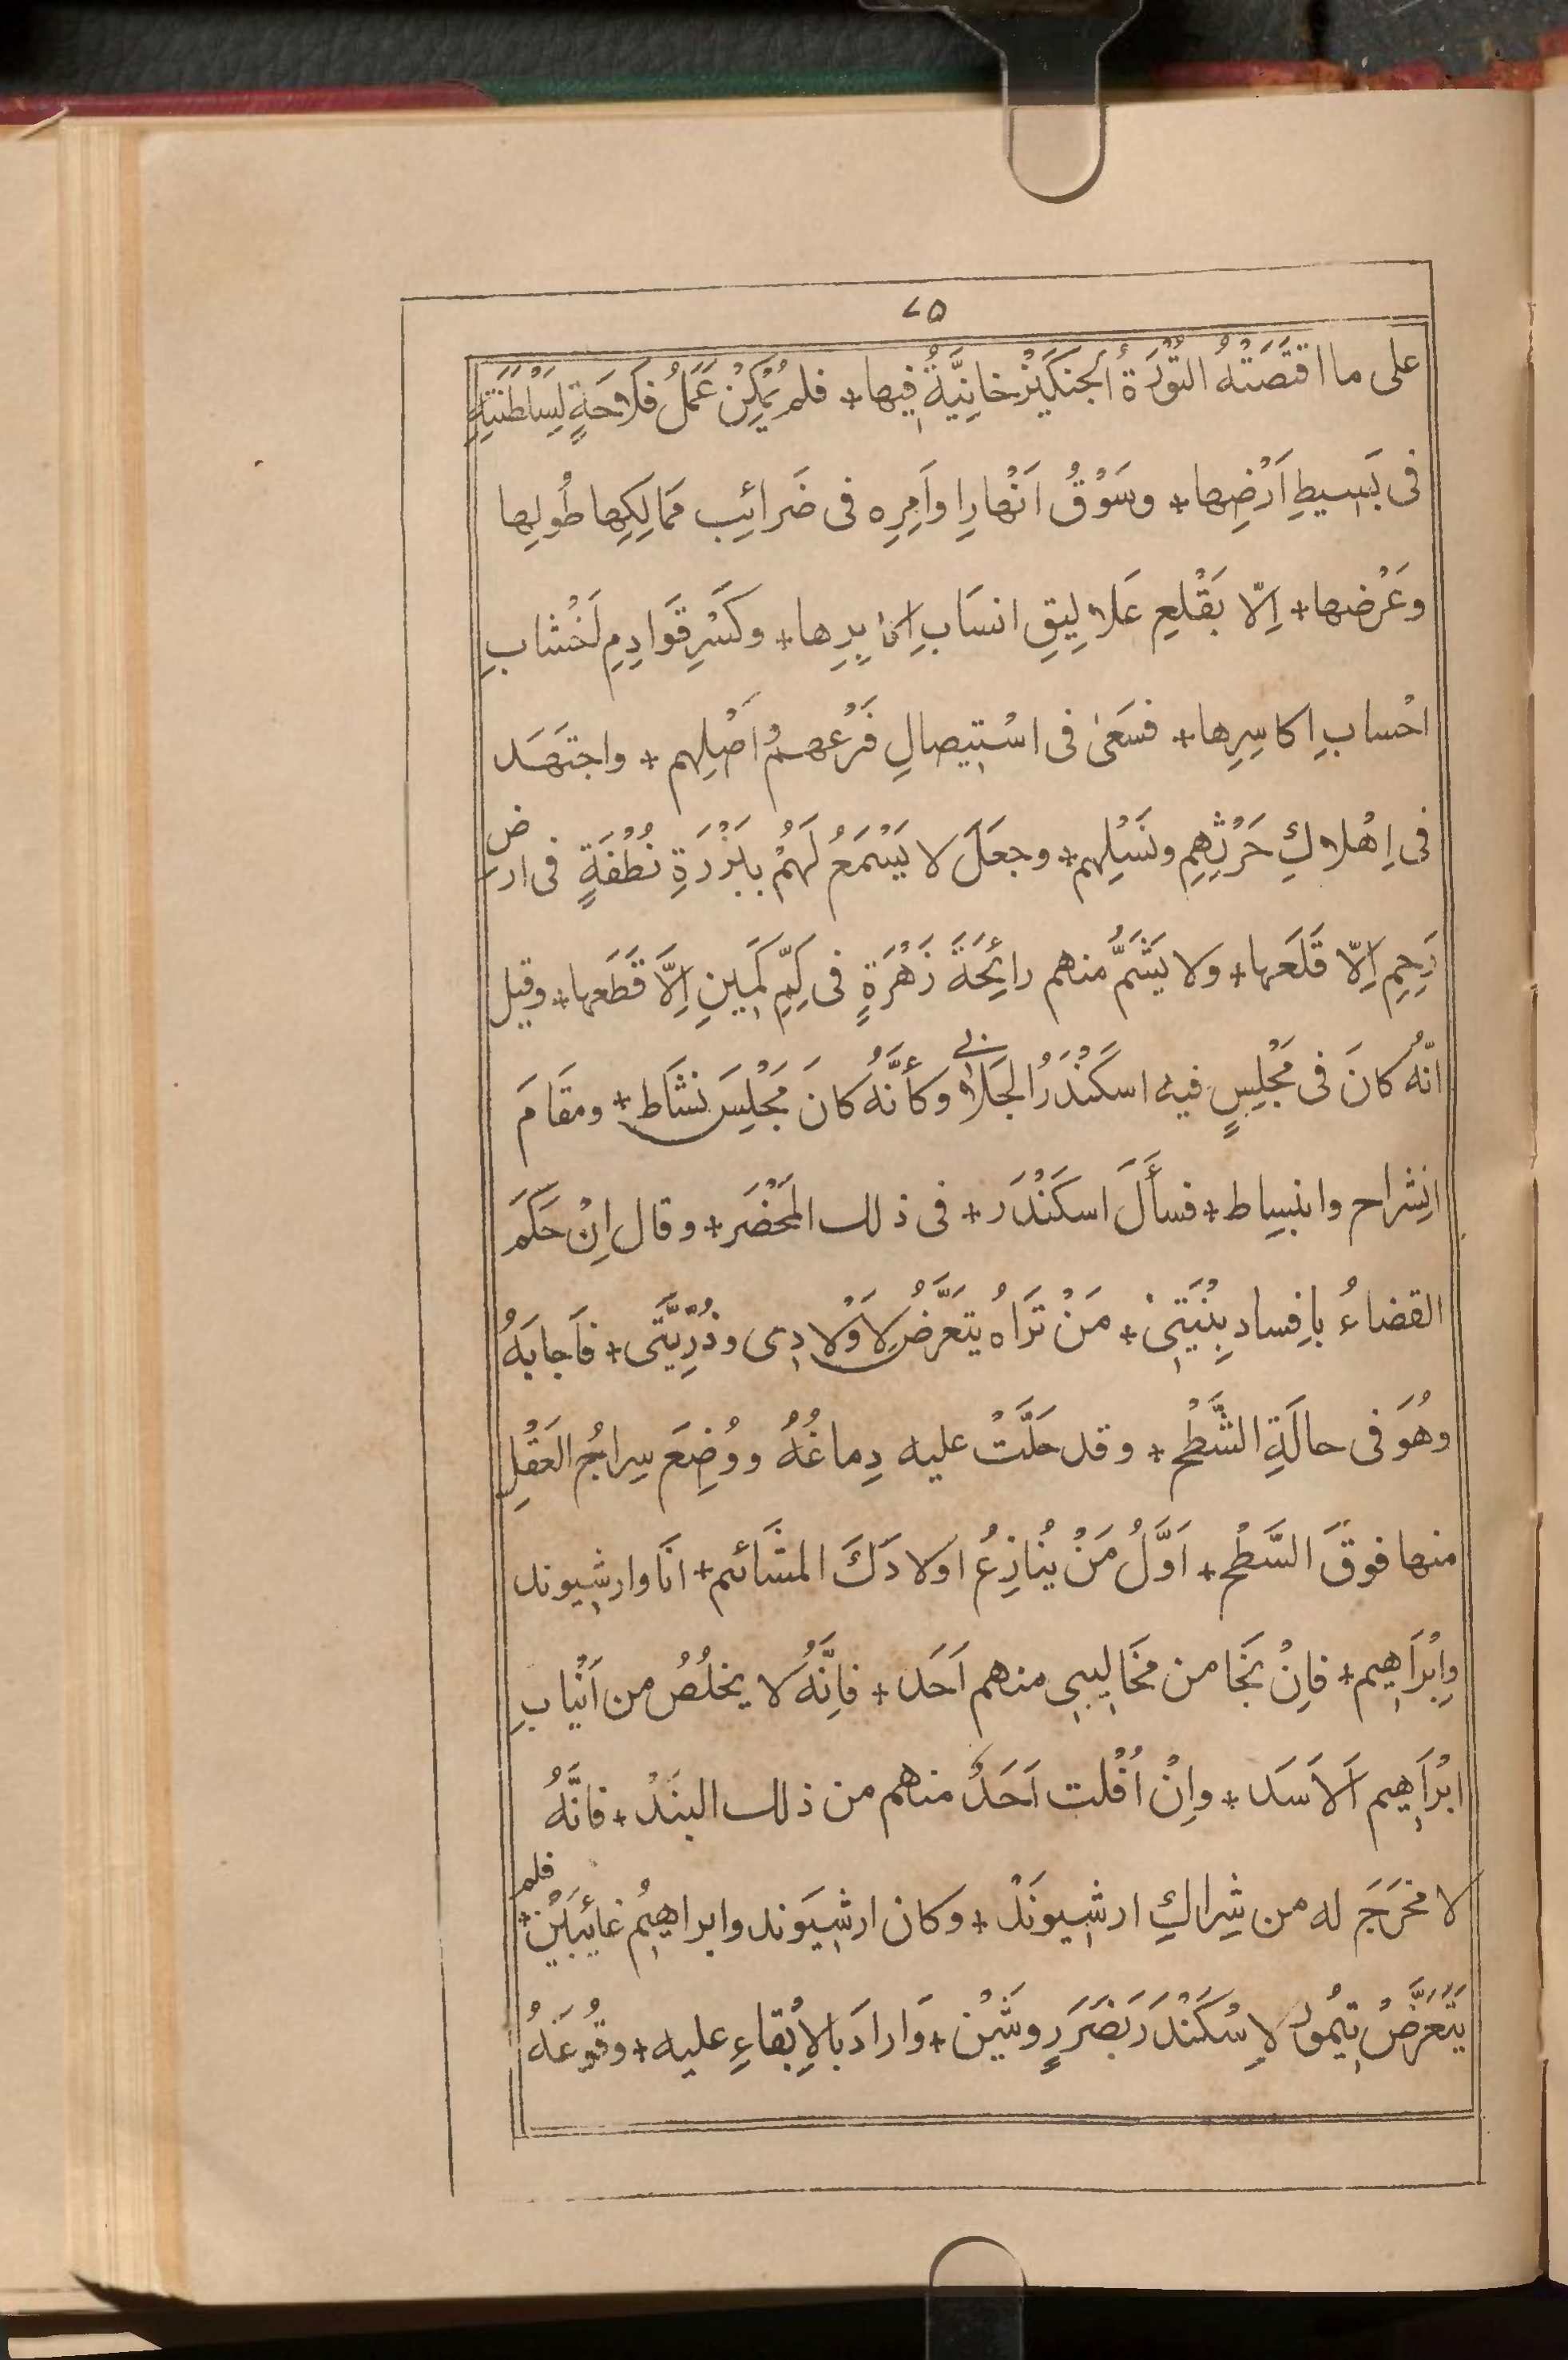 ٧٥
على ما اقتَضَتْهُ التُّوْرَةُ الجنكَيْزخانِيَّةُ فيها + فلم يُمْكِنْ عَمَلُ فَلَاحَةٍ لِسَلْطَنَتِهِ
فى بَسيطِ اَرْضِها + وسَوْقُ اَنْهارِ اواَمِرِه فى ضَرائِب مَمالِكِها طُولِها
وعَرْضها + اِلّا بقَلْعِ عَلالِيقِ انسَابِ اكابِرِها + وكَسْرِ قَوادِمِ اَخْشابِ
احْسابِ اكاسِرِها + فسَعَى فى اسْتِيصالِ فَرْعِهم واَصْلِهم + واجتَهَد
فى اِهْلاكِ حَرْثِهِم ونَسْلِهم + وجعَلَ لا يَسْمَعُ لَهُمْ ببَزْرَةِ نُطْفَةٍ فى ارض
رَحِمٍ اِلّا قَلَعَها + ولا يَشَمُّ منهم رائِحَةَ زَهْرَةٍ فى كِمِّ كَمِينٍ اِلَّا قَطَعها + وقيل
انّهُ كانَ فى مَجْلِسٍ فيه اسكَنْدَرُ الجَلابى وكأَنَّهُ كانَ مَجْلِسَ نَشَاط + ومقَامَ
انشِراح وانبِساط + فسأَلَ اسكَنْدَر + فى ذلك المَحْضَر + وقال اِنْ حَكَمَ
القضاءُ بافِساد بِنْيَتِىْ + مَنْ تَرَاهُ يتَعَرَّضُ لاَوْلادِى وذُرِّيَّتى + فاَجابَهُ
وهُوَ فى حالَةِ الشَّطْح + وقد حَلَّتْ عليه دِماغُهُ ووُضِعَ سِراجُ العَقْلِ
منها فوقَ السَّطْح + اَوَّلُ مَنْ يُنازِعُ اولادَكَ المشَائم + انَا وارشيوند
وابْرَاهيم + فاِنْ نَجَا من مخَالِيبى منهم اَحَد + فاِنَّهُ لا يخلُصُ من اَنْيابِ
ابْرَاهِيم اَلاَسَد + واِنْ اُفْلت اَحَدٌ منهم من ذلك البنَدْ + فانَّهُ
لا مخرَجَ له من شِراكِ ارشيونَدْ + وكان ارشيَوند وابراهيمُ غائِبَيْن + فلم
يتَعَرَّضْ تيمُور لاِسْكَنْدَر بضَرَرٍ وشَيْن + وَارادَ بالاِبْقاءِ عليه + وقُوعَهُ